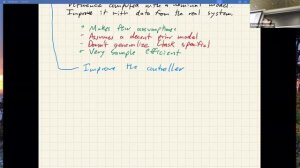 Reference computed with a nominal model
Improve it with data from the real system
+ Makes few assumptions
- Assumes a decent prior model
- Doesnt generalize (task specific)
+ Very sample efficient
Improve the controller